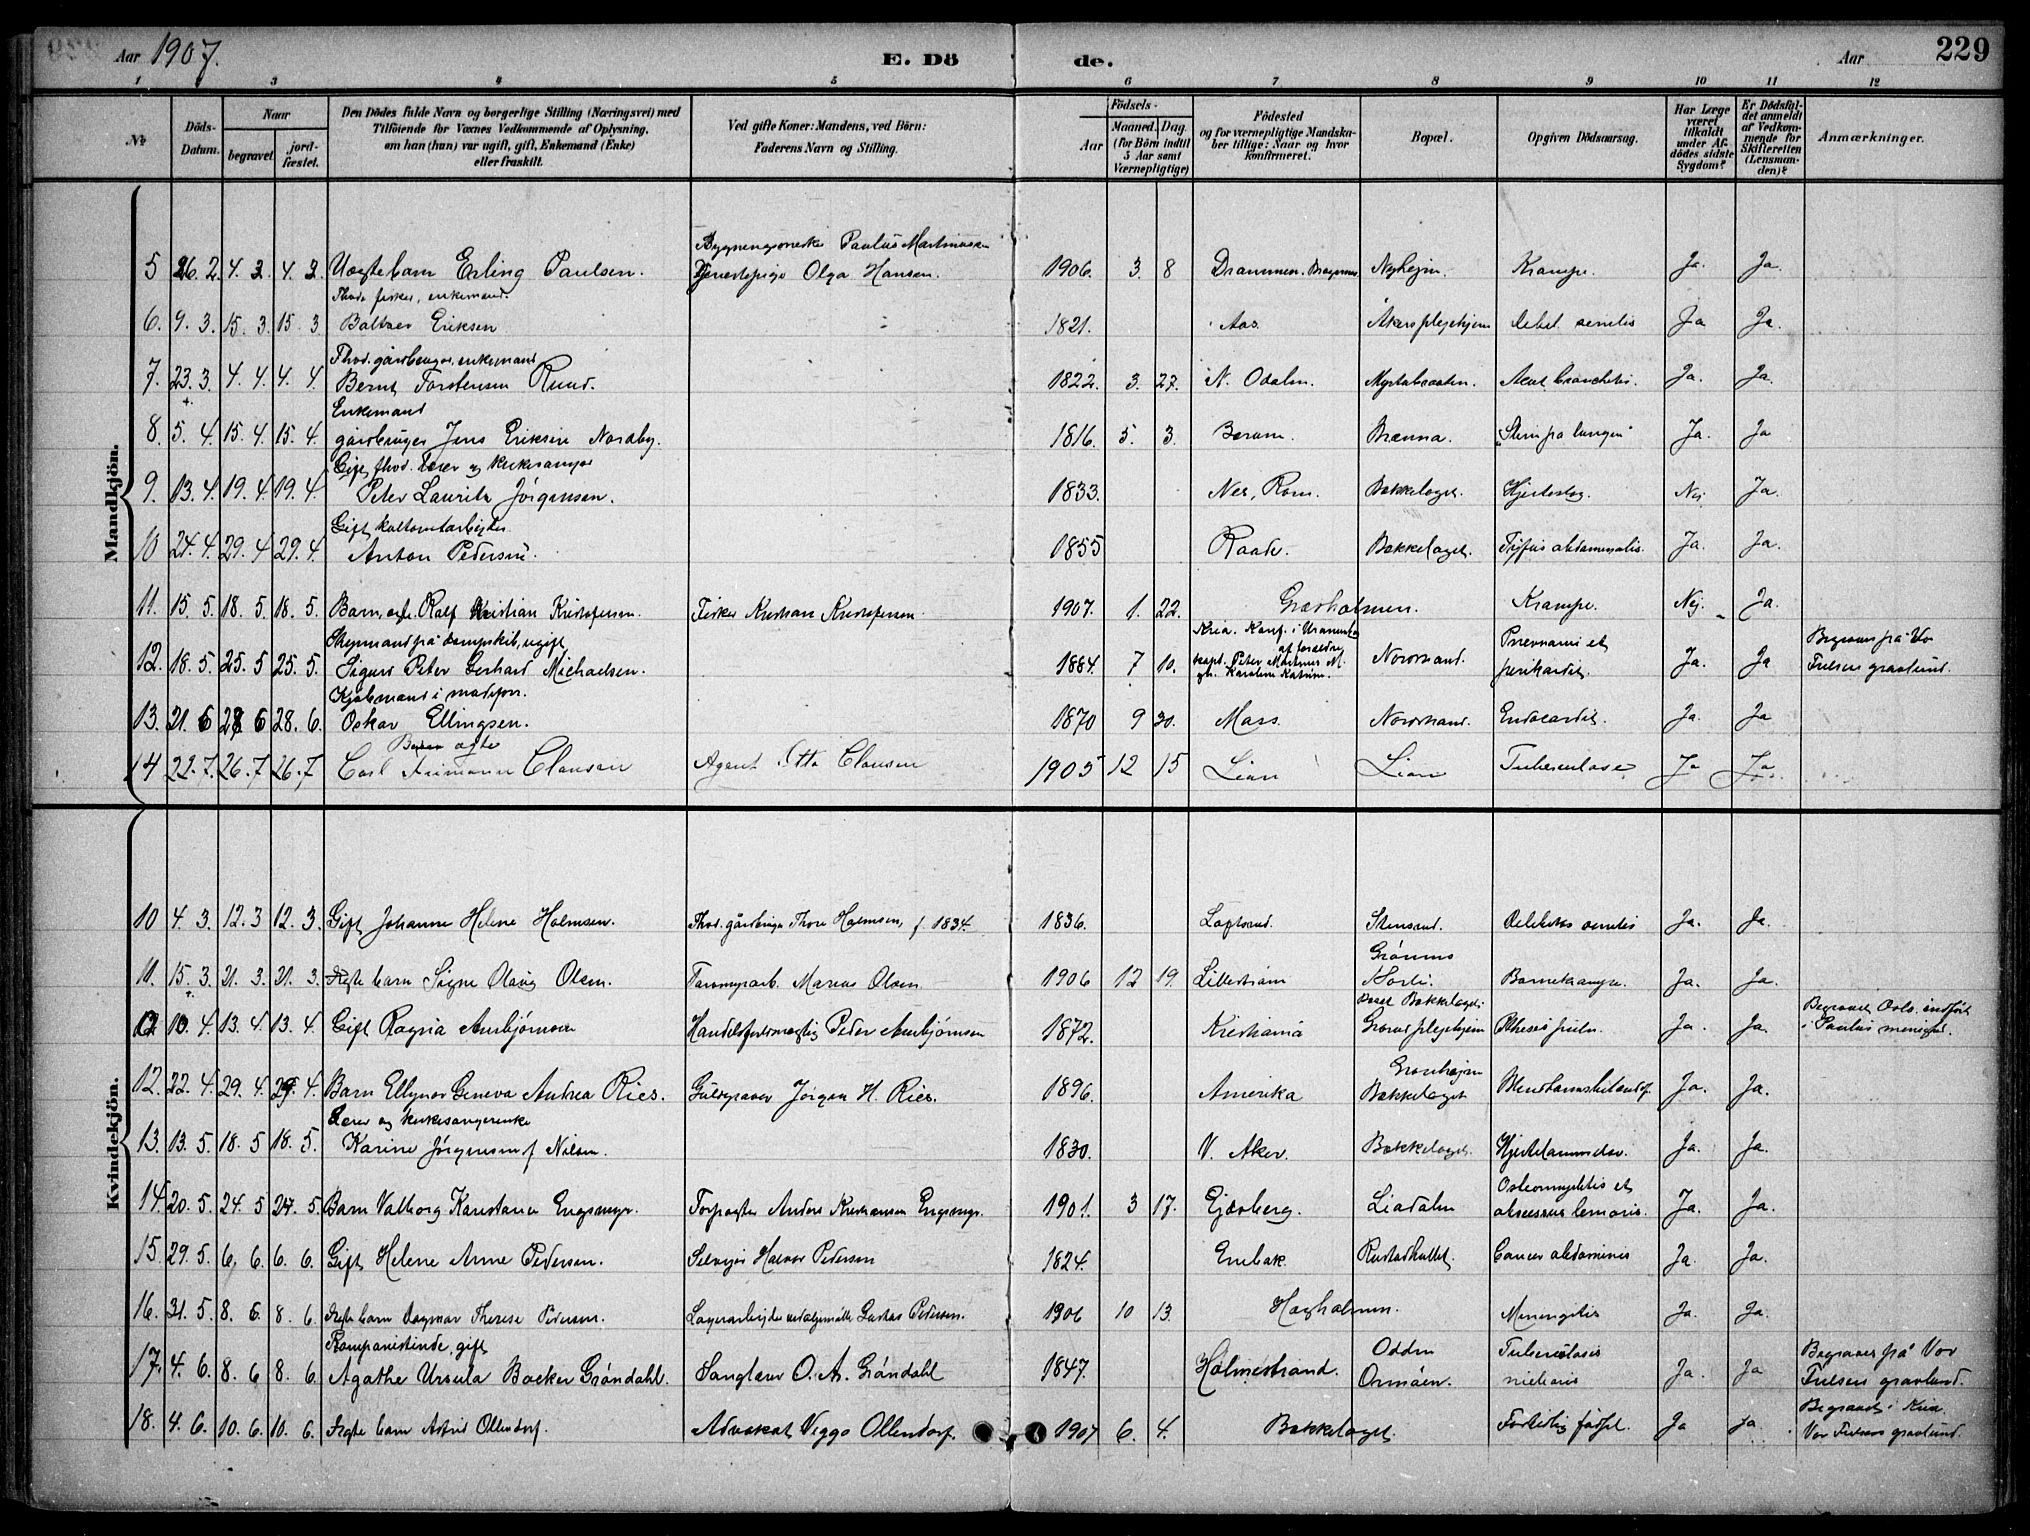 Aar 1907. E. Dö de. Aar 229
1 3 4 5 6 7 8 9 10 11 12
№ Döds-Datum. Naar begravet. jord-fæstet. Den Dödes fulde Navn og borgerlige Stilling (Næringsvei) med Tilföiende for Voxnes Vedkommende af Oplysning, om han (hun) var ugift, gift, Enkemand (Enke) eller fraskilt. Ved gifte Koner: Mandens, ved Börn: Faderens Navn og Stilling. Födsels- Aar Maaned. Dag. (for Börn indtil 5 Aar samt Værnepligtige) Födested og for værnepligtige Mandskaber tillige: Naar og hvor konfirmeret. Bopæl. Opgiven Dödsaarsag. Har Læge været tilkaldt under Afdödes sidste Sygdom? Er Dödsfaldet anmeldt af Vedkommende for Skifteretten (Lensmanden)? Anmærkninger.
Mandkjön.
Paulus Martinusen
5 26. 2. 4. 3. 4. 3. Uægte barn Erling Paulsen. Tjenestepige Olga Hansen. 1906. 3. 8 Drammen. Nyhejm. Krampe. Ja. Ja.
Fhv. fisker, enkemand.
6. 9. 3. 15. 3. 15. 3. Baltser Eriksen 1821. Aas. Akers plejehjem debil. senilis Ja Ja.
Fhv. gårdbruger, enkemand
7. 23. 3. 4. 4. 4. 4. Bernt Torstensen Ruud. 1822. 3. 27. N. Odalen. Akut bronchitis. Ja. Ja.
Enkemand
8. 5. 4. 15. 4. 15. 4. gårdbruger Jens Eriksen Nordby. 1816. 5. 3. Bærum. Brenna. "Sten på lungen" Ja. Ja
Gift, fhv. lærer og kirkesanger
9. 13. 4. 19. 4. 19. 4. Peter Lauritz Jörgensen. 1833. Nes, Rom. Bækkelaget. Hjerteslag. Nej. Ja.
Gift
10 24. 4. 29. 4. 29. 4. Anton Pedersen. 1855 Raade. Bækkelaget. Tyfus abdominalis. Ja. Ja.
11. 15. 5. 18. 5. 18. 5. Barn, Rolf Kristian Kristofersen. Fisker Kristian Kristofersen 1907. 1. 22. Græsholmen. Krampe. Nej. Ja.
Styrmand på dampskib, ugift, Kria. Konf. i af foreldre Pnevmoni et Begraves på Vor
12. 18. 5. 25. 5 25. 5. Sigurd Peter Gerhard Michaelsen. 1884. 7 10. Peter Martinus M. Karoline Katrine. Nordstrand. perikardit. Ja. Ja Frelsers gravlund.
Kjöbmand i
13. 21. 6 28 6 28. 6. Oskar Ellingsen. 1870 9 30. Moss. Nordstrand. Endocardit. Ja. Ja
Barn ægte
14 22. 7. 26. 7 26. 7 Carl Clausen Agent Otto Clausen 1905 12 15 Lian Lian Tuberculose Ja Ja
Kvindekjön.
10 4. 3. 12. 3 12. 3. Gift Johanne Helene Holmsen. Fhv. gårdbruger Thore Holmsen, f. 1834. 1836. Stensrud. debilitas senilis Ja. Ja.
11. 15. 3. 21. 3. 21. 3. Ægte barn Signe Olaug Olsen. Marius Olsen 1906 12 19. Lillestrøm Barnekrampe. Ja. Ja.
Begravet Oslo, indført
12 10. 4. 13. 4. 13. 4. Gift Ragna Aurbjörnsen Handelsfuldmægtig Peder Aurbjörnsen 1872. Kristiania plejehjem Phtisis pulm. Ja. Ja. i Paulus menighed.
12. 22. 4. 29. 4. 29. 4. Barn Ellynor Geneva Andrea Ries. Guldgraver Jörgen H. Ries. 1896. Amerika Bækkelaget Ja. Ja.
Lærer og kirkesangerenke
13. 13. 5. 18. 5 18. 5. Karine Jörgensen f. Nilsen. 1830. V. Aker. Bækkelaget. Hjertelammelse. Ja. Ja.
Osteomyelitis et
14. 20. 5. 24. 5 24. 5. Barn Valborg Konstance Engsmyr. Forpagter Anders Kristiansen Engsmyr. 1901. 3 17. Gjersberg. Liadalen abscessus femoris. Ja. Ja.
15. 29. 5. 6. 6. 6. 6. Gift Helene Anne Pedersen. Selvejer Halvor Pedersen 1824. Enebak. Rustadhullet. Cancer abdominis Ja. Ja.
16. 31. 5. 8. 6. 8. 6. Ægte barn Dagmar Therese Pedersen. Lagerarbejder Gustav Pedersen. 1906 10 13. Heggholmen. Meningitis Ja. Ja.
Kompanistinde, gift Odden Tuberculosis Begraves på Vor
17. 4. 6. 8. 6. 8. 6. Agathe Ursula Backer Gröndahl. Sanglærer O. A. Gröndahl 1847. Holmestrand. Ormöen. miliaris Ja. Ja Frelsers gravlund.
Begravet i Kria
18. 4. 6. 10. 6. 10. 6. Ægte barn Astrid Ollendorf. Advokat Viggo Ollendorf. 1907 6. 4. Bækkelaget. For tidlig födsel. Ja Ja Vor Frelsers gravlund.